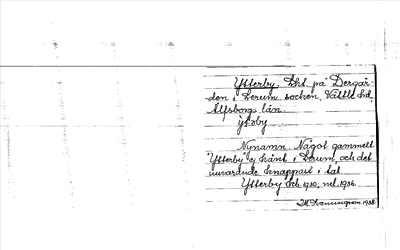 Ytterby. Lht. på Dergär-
den i Lerum socken, Vättle hd,
Älfsborgs län.
ytərby
Nynamn. Något gammalt
"Ytterby" ej känt i Lerum, och det
nuvarande knappast i tal
Ytterby 1930, 1936.
1938.